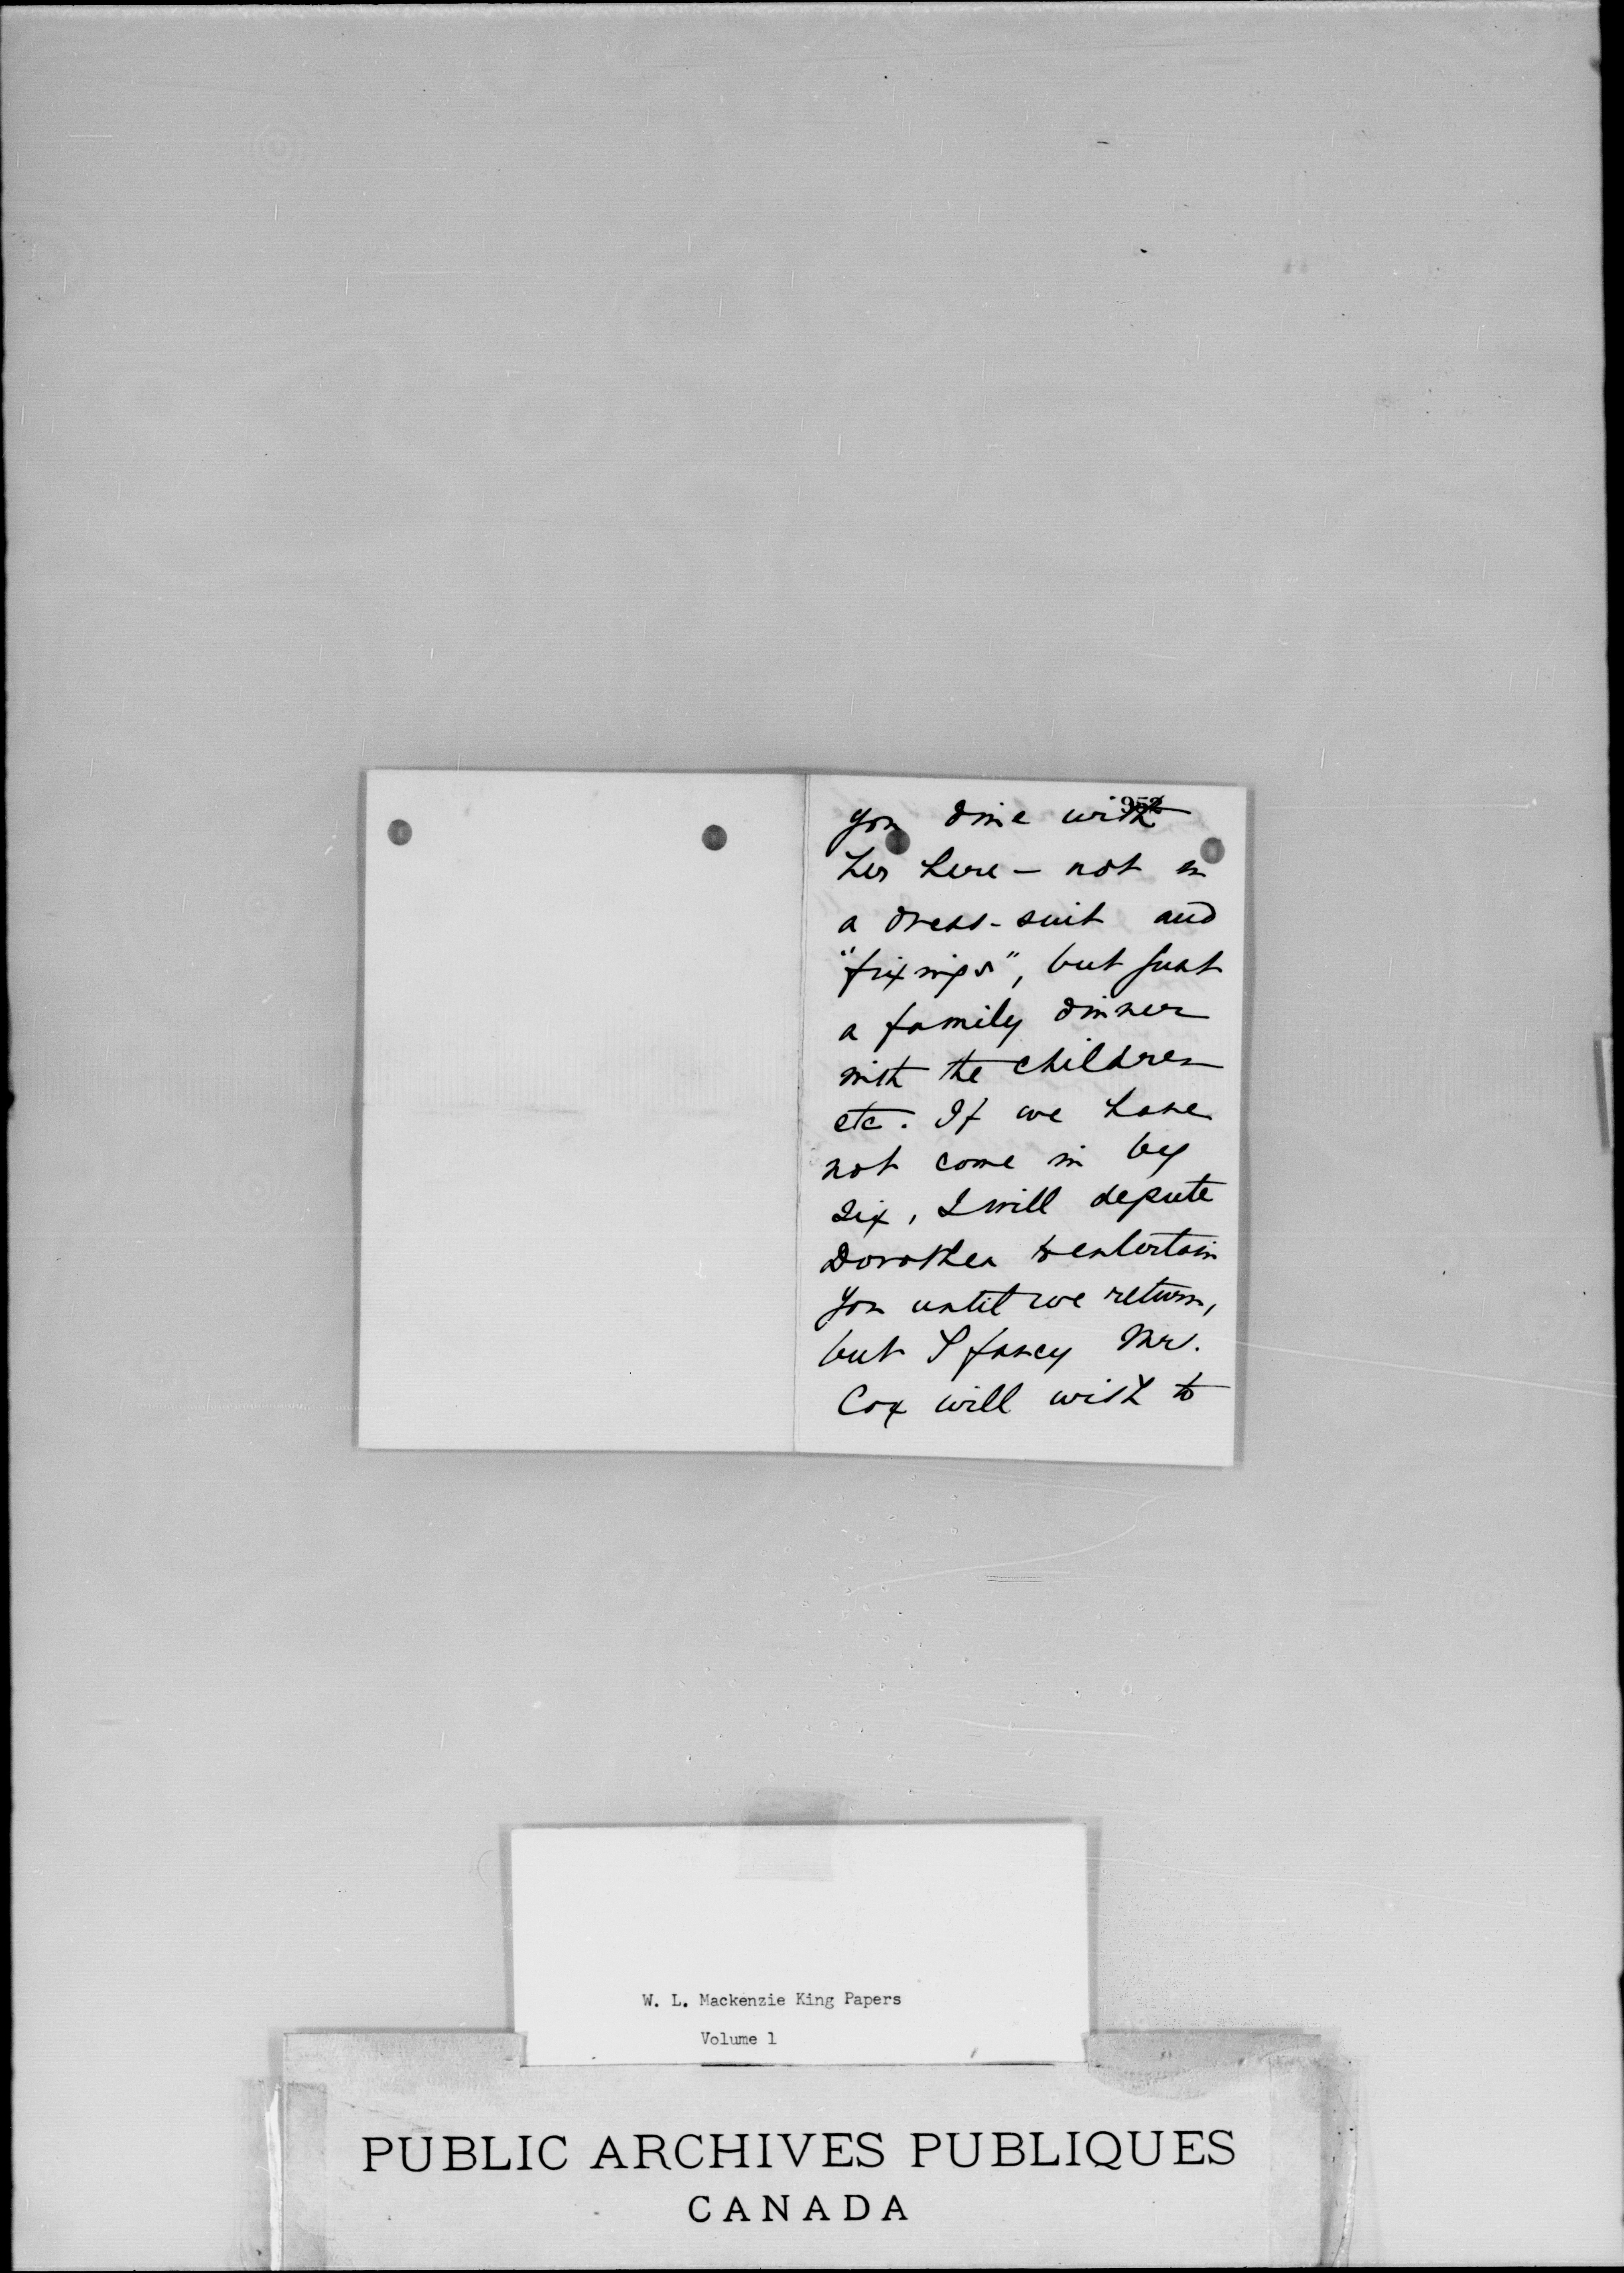 952
you dine with
her here - not in
a dress-suit and
"fixings", but just
a family dinner
with the children
etc. If we have
not come in by
six, I will depute
Dorothea to entertain
you until we return,
but I fancy Mr.
Cox will wish to
W. L. Mackenzie King Papers
Volume 1
PUBLIC ARCHIVES PUBLIQUES
CANADA